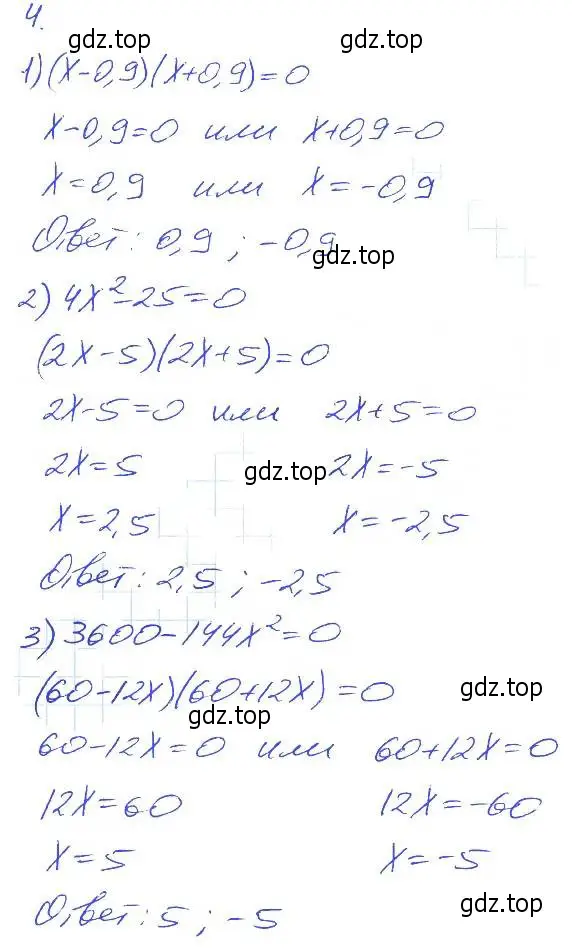 4.
gdz.top
1) (x-0,9)(x+0,9)=0
x-0,9=0 или x+0,9=0
x=0,9 или x=-0,9
Ответ: 0,9 ; -0,9
gdz.top
2) 4x²-25=0
(2x-5)(2x+5)=0
2x-5=0 или 2x+5=0
2x=5 gdz.top 2x=-5
x=2,5 x=-2,5
Ответ: 2,5 ; -2,5
3) 3600-144x²=0
(60-12x)(60+12x)=0 gdz.top
gdz.top
60-12x=0 или 60+12x=0
12x=60 12x=-60
gdz.top
x=5 x=-5
Ответ: 5 ; -5
gdz.top